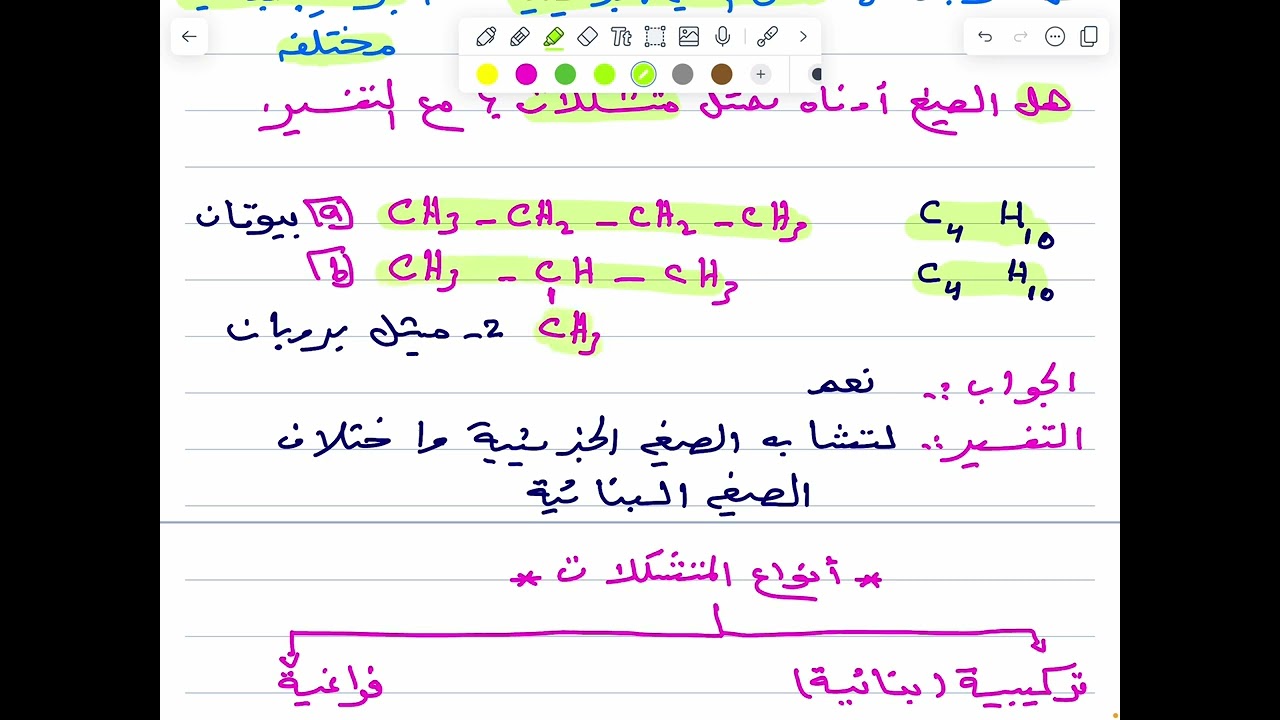 مختلفه
هل الصيغ أدناه تمثل متشكلات ؟ مع التفسير.
بيوتان a CH3 - CH2 - CH2 - CH3 C4 H10
b CH3 - CH - CH3 C4 H10
CH3 2- ميثل بروبان
الجواب :. نعم
التفسير :. لتشابه الصيغ الجزيئية واختلاف
الصيغ البنائية
* أنواع المتشكلات *
تركيبية (بنائية) فراغية